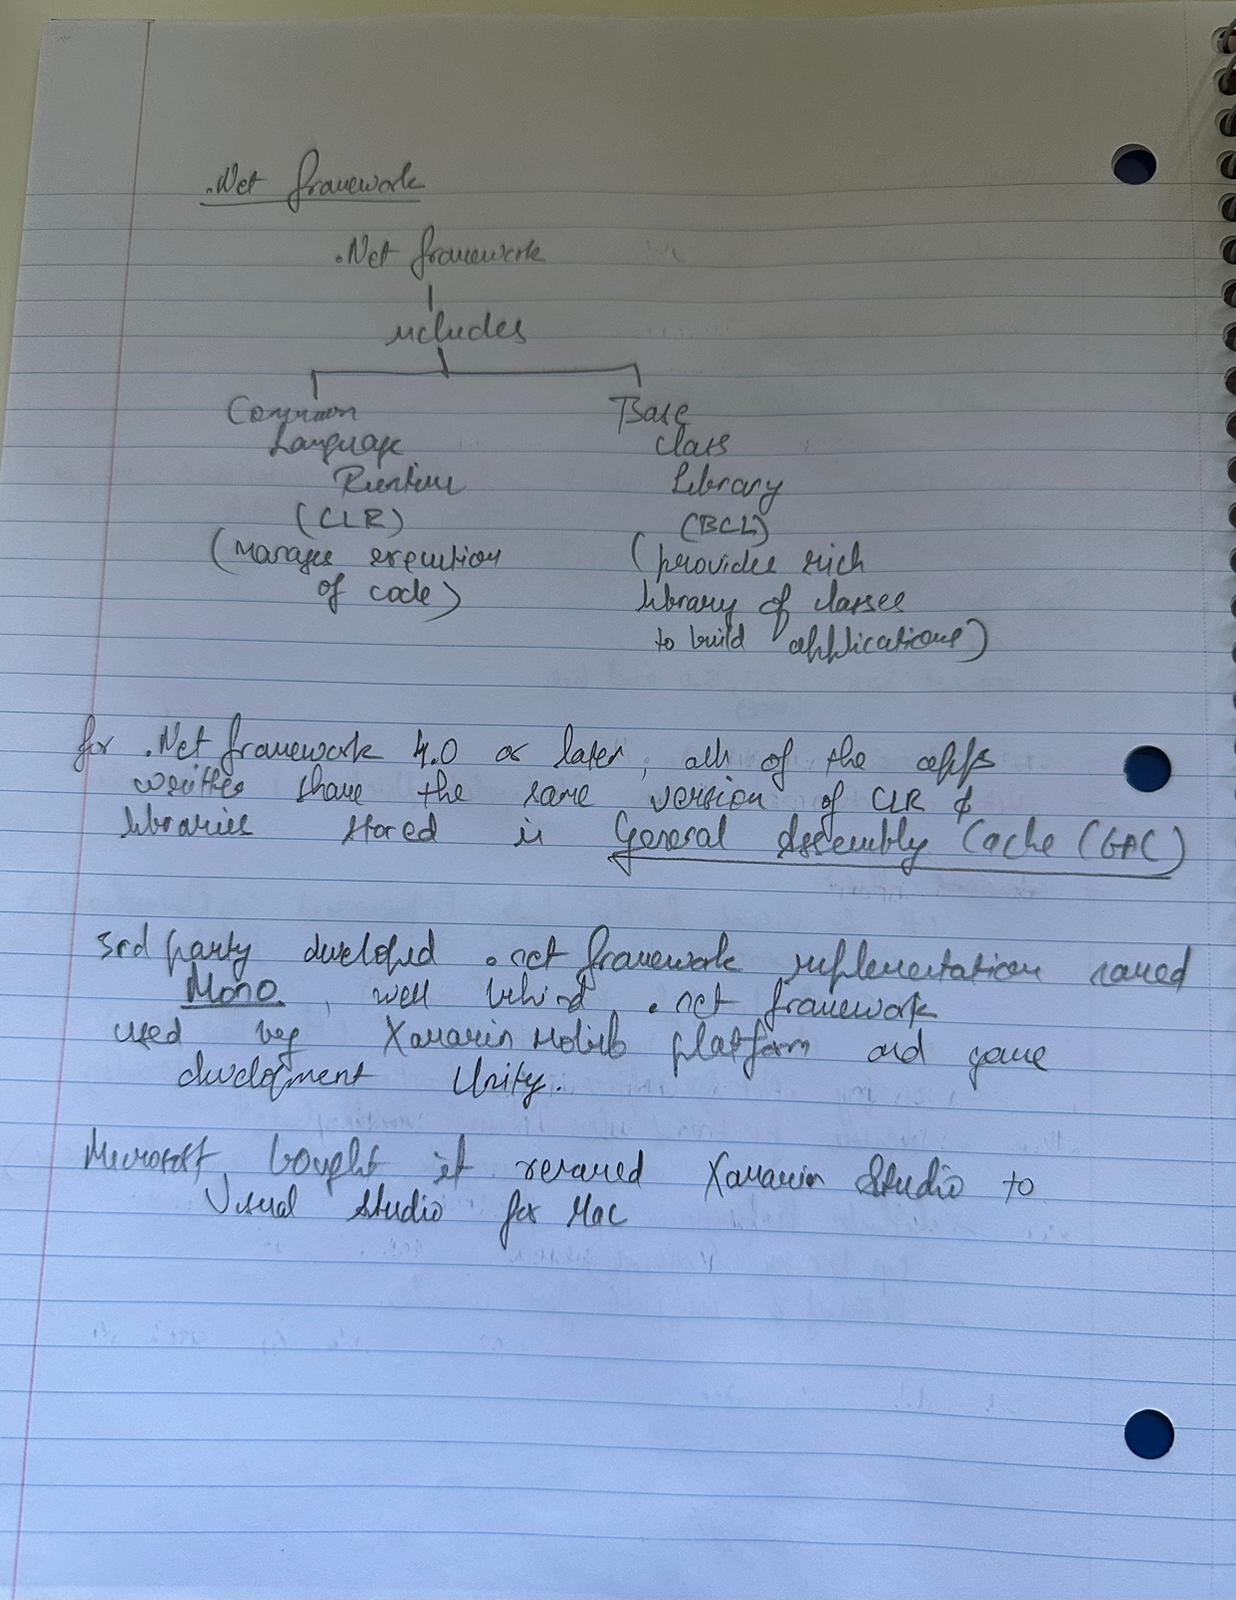 .Net framework
.Net framework
includes
Common
Language
Runtime
(CLR)
(Manages execution
of code)
Base
class
Library
(BCL)
(provides rich
library of classes
to build applications)
for .Net framework 4.0 or later, all of the apps
written share the same version of CLR &
libraries stored in General Assembly Cache (GAC)
3rd party developed .net framework implementation named
Mono, well behind .net framework
used by Xamarin Mobile platform and game
development Unity.
Microsoft bought it renamed Xamarin Studio to
Visual Studio for Mac